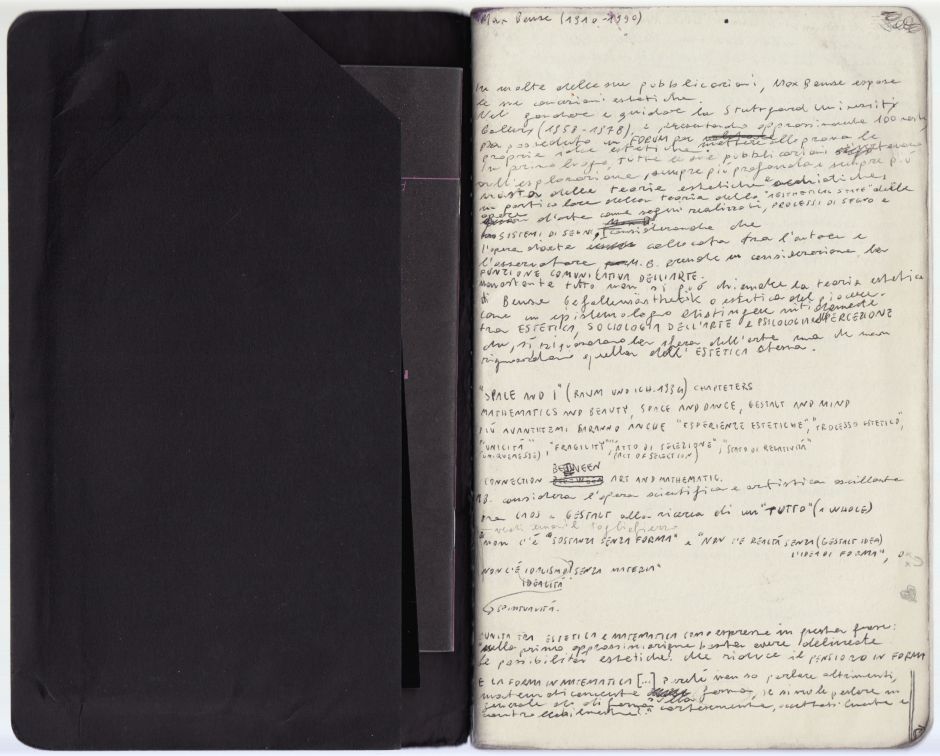 Max Bense (1910-1990)
In molte delle sue pubblicazioni, Max Bense espone
le sue concezioni estetiche.
Nel fondare e guidare la Stuttgard University
Gallery (1958-1978), e presentando approssimante 100
ha posseduto un FORUM per mettere alla prova le
proprie idee estetiche
In primo luogo, tutte le sue pubblicazioni
sull'esplorazione, sempre più profonda e sempre più
vasta delle teorie estetiche
in particolare della teoria dello "AESTHETICAL STATE" delle
opere d'arte come segni realizzati, PROCESSI DI SEGNO e
SISTEMI DI SEGNI, considerando che
l'opera d'arte collocata tra l'autore e
l'osservatore M.B. prende in considerazione la
FUNZIONE COMUNICATIVA DELL'ARTE.
nonostante tutto non si può chiamare la teoria estetica
di Bense Gefallensästhetik o estetica del piacere.
come un epistemologo distingue nitidamente
tra ESTETICA, SOCIOLOGIA DELL'ARTE e PSICOLOGIA PERCEZIONE
che, sì, riguardano la sfera dell'arte ma che non
riguardano quella dell'ESTETICA
"SPACE AND I" (RAUM UND ICH-1934) CHAPTETERS
MATHEMATICS AND BEAUTY, SPACE AND DANCE, GESTALT AND MIND
PIÙ AVANTI TEMI SARANNO ANCHE "ESPERIENZE ESTETICHE", "PROCESSO ESTETICO",
"UNICITÀ", "FRAGILITY", "ATTO DI SELEZIONE", "STATO DI RELATIVITÀ"
(ACT OF SELECTION)
BETWEEN
CONNECTION ART AND MATHEMATIC.
M.B. considera l'opera scientifica e artistica oscillante
tra CAOS e GESTALT alla ricerca di un "TUTTO" (A WHOLE)
"non c'è "SOSTANZA SENZA FORMA" e "NON C'È REALTÀ SENZA (GESTALT IDEA)
L'IDEA DI FORMA", O
NON C'È IDEALISMO SENZA MATERIA"
IDEALITÀ
SPIRITUALITÀ.
L'UNITÀ TRA ESTETICA E MATEMATICA COMO espresse in questa frase:
"nella prima approssimazione basta avere delineate
le possibilità estetiche che riduce il PENSIERO IN FORMA
E LA FORMA IN MATEMATICA [...] Perché non so parlare altrimenti,
matematicamente forma, se non le parlare in
generale che di forma